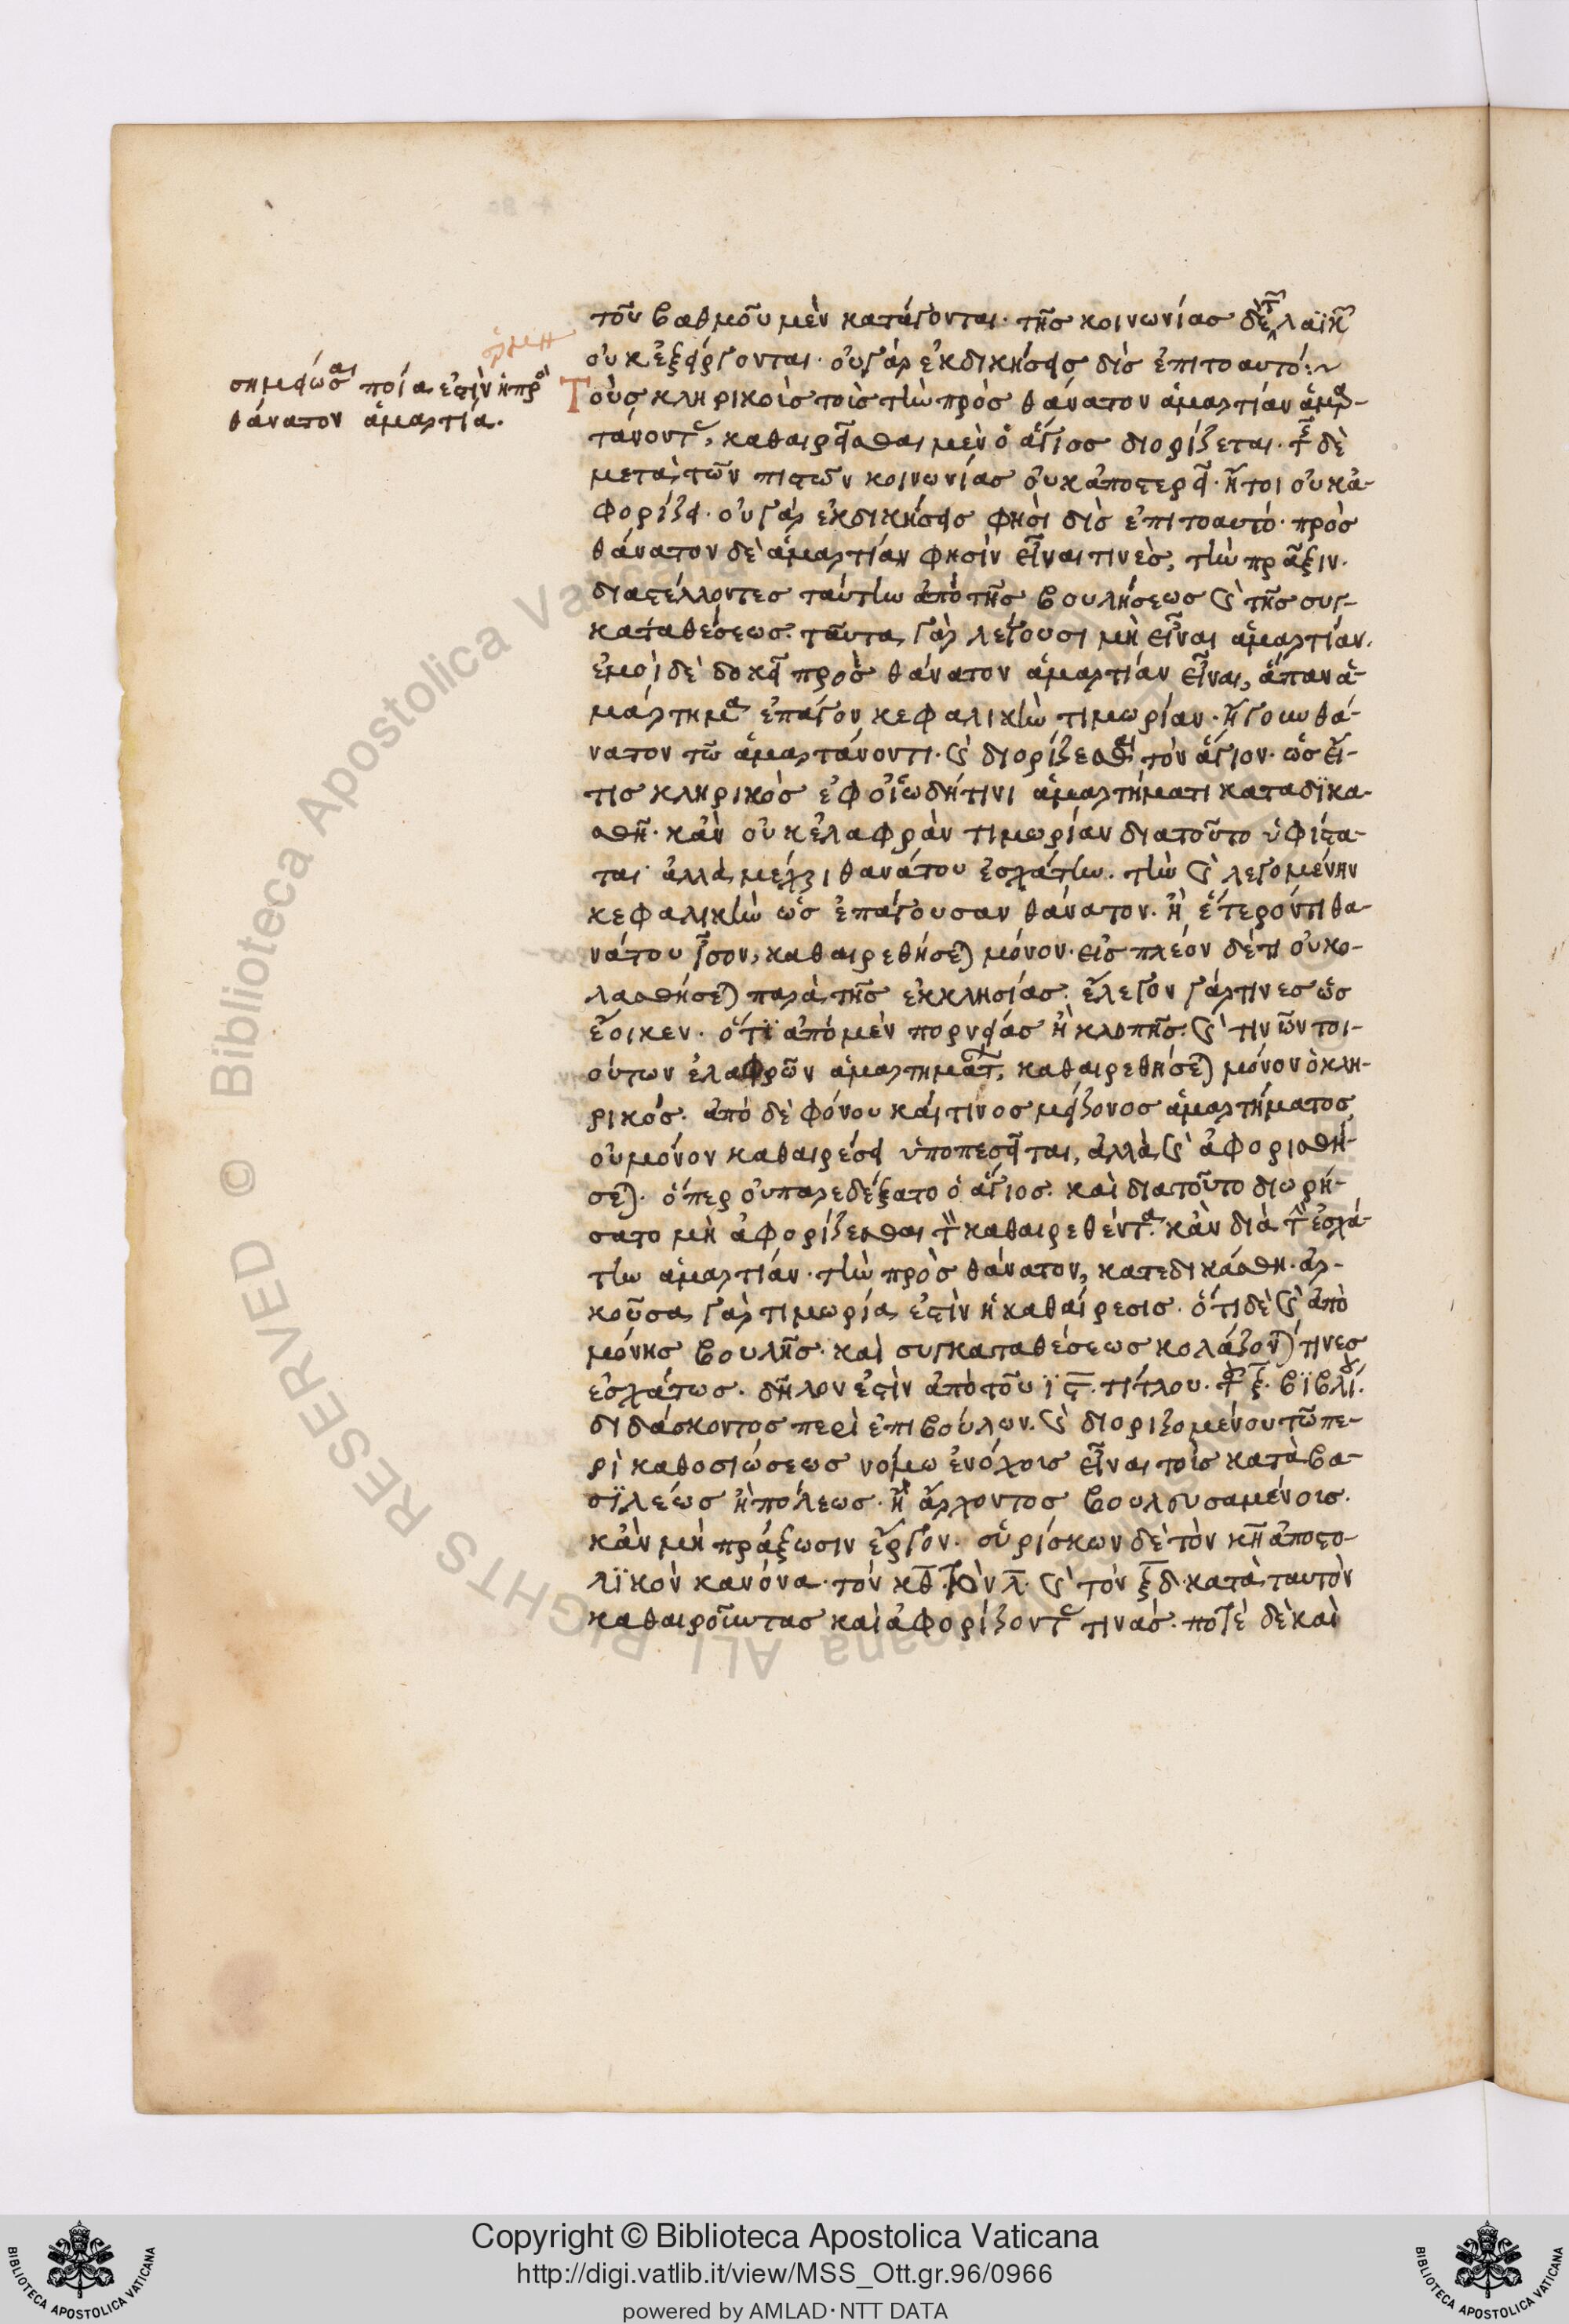 ἑρμη
σημείωσαι ποία ἐστὶν ἡ πρὸς
θάνατον ἁμαρτία.
τοῦ βαθμοῦ μὲν κατάγονται· τῆς κοινωνίας δὲ τῶν λαϊκῶν
οὐκ ἐξείργονται· οὐ γὰρ ἐκδικήσεις δὶς ἐπιτοαυτό:~
Τοὺς κληρικοὺς τοὺς τὴν πρὸς θάνατον ἁμαρτίαν ἁμαρ-
τάνοντας, καθαιρεῖσθαι μὲν ὁ ἅγιος διορίζεται· τῆς δὲ
μετὰ τῶν πιστῶν κοινωνίας οὐκ ἀποστερεῖ· ἤτοι οὐκ ἀ-
φορίζει· οὐ γὰρ ἐκδικήσεις φησὶ δὶς ἐπιτοαυτό· πρὸς
θάνατον δὲ ἁμαρτίαν φησὶν εἶναι τινὲς, τὴν πρᾶξιν·
διαστέλλοντες ταύτην ἀπὸ τῆς βουλήσεως καὶ τῆς συγ-
καταθέσεως· ταῦτα γὰρ λέγουσι μὴ εἶναι ἁμαρτίαν.
ἐμοὶ δὲ δοκεῖ πρὸς θάνατον ἁμαρτίαν εἶναι, ἅπαν ἁ-
μάρτημα ἐπάγον κεφαλικὴν τιμωρίαν· ἤγουν θά-
νατον τῶ ἁμαρτάνοντι· καὶ διορίζεσθαι τὸν ἅγιον· ὡς εἴ-
τις κληρικὸς ἐφ οἱωδήτινι ἁμαρτήματι καταδικα-
σθῆ· κἂν οὐκ ἐλαφρὰν τιμωρίαν διατοῦτο ὑφίστα-
ται ἀλλὰ μέχρι θανάτου ἐσχάτην· τὴν καὶ λεγομένην
κεφαλικὴν ὡς ἐπάγουσαν θάνατον· ἢ ἕτερόν τι θα-
νάτου ἴσον, καθαιρεθήσεται μόνον· εἰς πλέον δέ τι οὐ κο-
λασθήσεται παρὰ τῆς ἐκκλησίας· ἔλεγον γάρ τινες ὡς
ἔοικεν· ὅτι ἀπὸ μὲν πορνείας ἢ κλοπῆς· καὶ τινῶν τοι-
ούτων ἐλαφρῶν ἁμαρτημάτων, καθαιρεθήσεται μόνον ὁ κλη-
ρικός· ἀπὸ δὲ φόνου καί τινος μείζονος ἁμαρτήματος
οὐ μόνον καθαιρέσει ὑποπεσεῖται, ἀλλὰ καὶ ἀφορισθή-
σεται· ὅπερ οὐ παρεδέξατο ὁ ἅγιος· καὶ διατοῦτο διωρί-
σατο μὴ ἀφορίζεσθαι τὸν καθαιρεθέντα· κἂν διὰ τὴν ἐσχά-
την ἁμαρτίαν· τὴν πρὸς θάνατον, κατεδικάσθη· ἀρ-
κοῦσα γὰρ τιμωρία ἐστὶν ἡ καθαίρεσις· ὅτι δὲ καὶ ἀπὸ
μόνης βουλῆς· καὶ συγκαταθέσεως κολάζονταί τινες
ἐσχάτως· δῆλον ἐστὶν ἀπὸ τοῦ ϊς τίτλου· τοῦ ξ βιβλίου.
διδάσκοντος περὶ ἐπιβούλων· καὶ διοριζομένου τῶ πε-
ρὶ καθοσιώσεως νόμω ἐνόχους εἶναι τοὺς κατὰ βα-
σιλέως ἢ πόλεως· ἢ ἄρχοντος βουλευσαμένους.
κἂν μὴ πράξωσιν ἔργον· εὑρίσκων δὲ τὸν κη ἀποστο-
λικὸν κανόνα· τὸν κθ· τὸν λ· καὶ τὸν ξδ· κατὰ ταυτὸν
καθαιροῦντας καὶ ἀφορίζοντας τινάς· ποτὲ δὲ καὶ
Copyright © Biblioteca Apostolica Vaticana
http://digi.vatlib.it/view/MSS_Ott.gr.96/0966
powered by AMLAD·NTT DATA